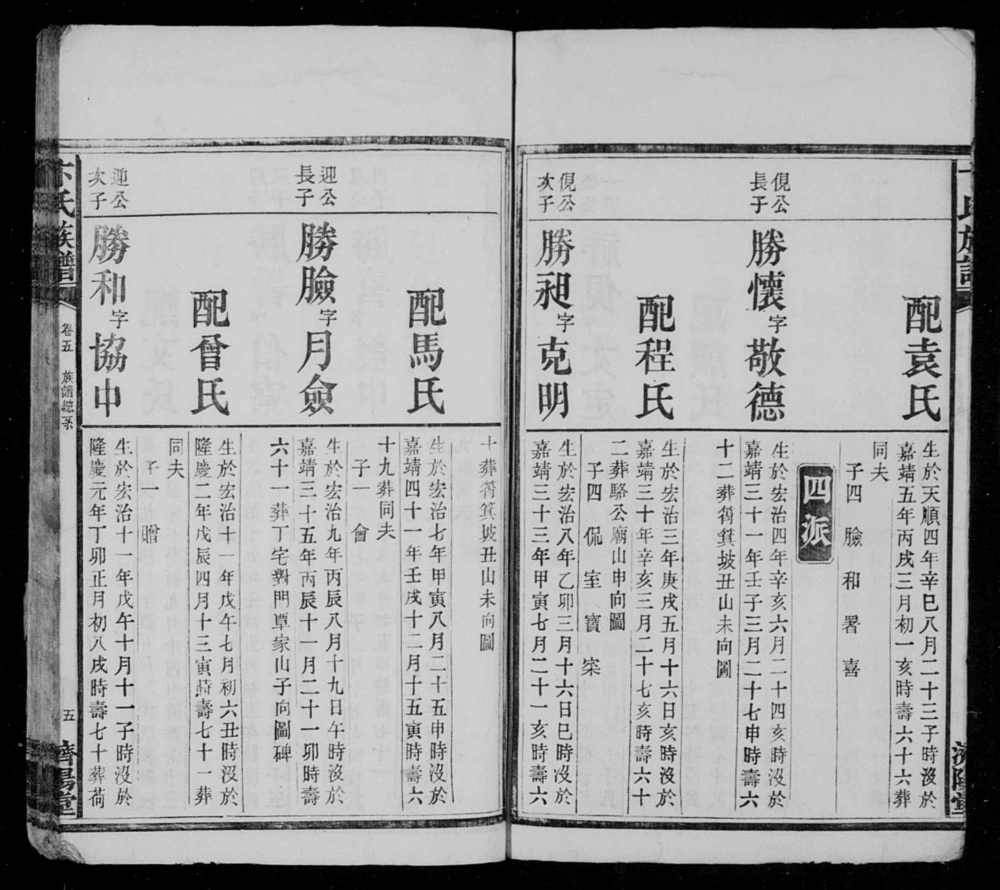 配袁氏
生於天順四年辛巳八月二十三子時沒於
嘉靖五年丙戌三月初一亥時壽六十六葬
同夫
子四 臉 和 署 喜
四派
倪公長子
勝懷字敬德
生於宏治四年辛亥六月二十四亥時沒於
嘉靖三十一年壬子三月二十七申時壽六
十二葬筲箕坡丑山未向圖
配程氏
生於宏治三年庚戌五月十六日亥時沒於
嘉靖三十年辛亥三月二十七亥時壽六十
二葬駱公廟山申向圖
子四 侃 室 寶 寀
倪公次子
勝昶字克明
生於宏治八年乙卯三月十六日巳時沒於
嘉靖三十三年甲寅七月二十一亥時壽六
十葬筲箕坡丑山未向圖
配馬氏
生於宏治七年甲寅八月二十五申時沒於
嘉靖四十一年壬戌十二月十五寅時壽六
十九葬同夫
子一 會
迎公長子
勝臉字月僉
生於宏治九年丙辰八月十九日午時沒於
嘉靖三十五年丙辰十一月二十一卯時壽
六十一葬丁宅對門覃家山子向圖碑
配曾氏
生於宏治十一年戊午七月初六丑時沒於
隆慶二年戊辰四月十三寅時壽七十一葬
同夫
子一 贈
迎公次子
勝和字協中
生於宏治十一年戊午十月十一子時沒於
隆慶元年丁卯正月初八戌時壽七十葬荷
卞氏族譜
卷五 族譜總系
五
濟陽堂